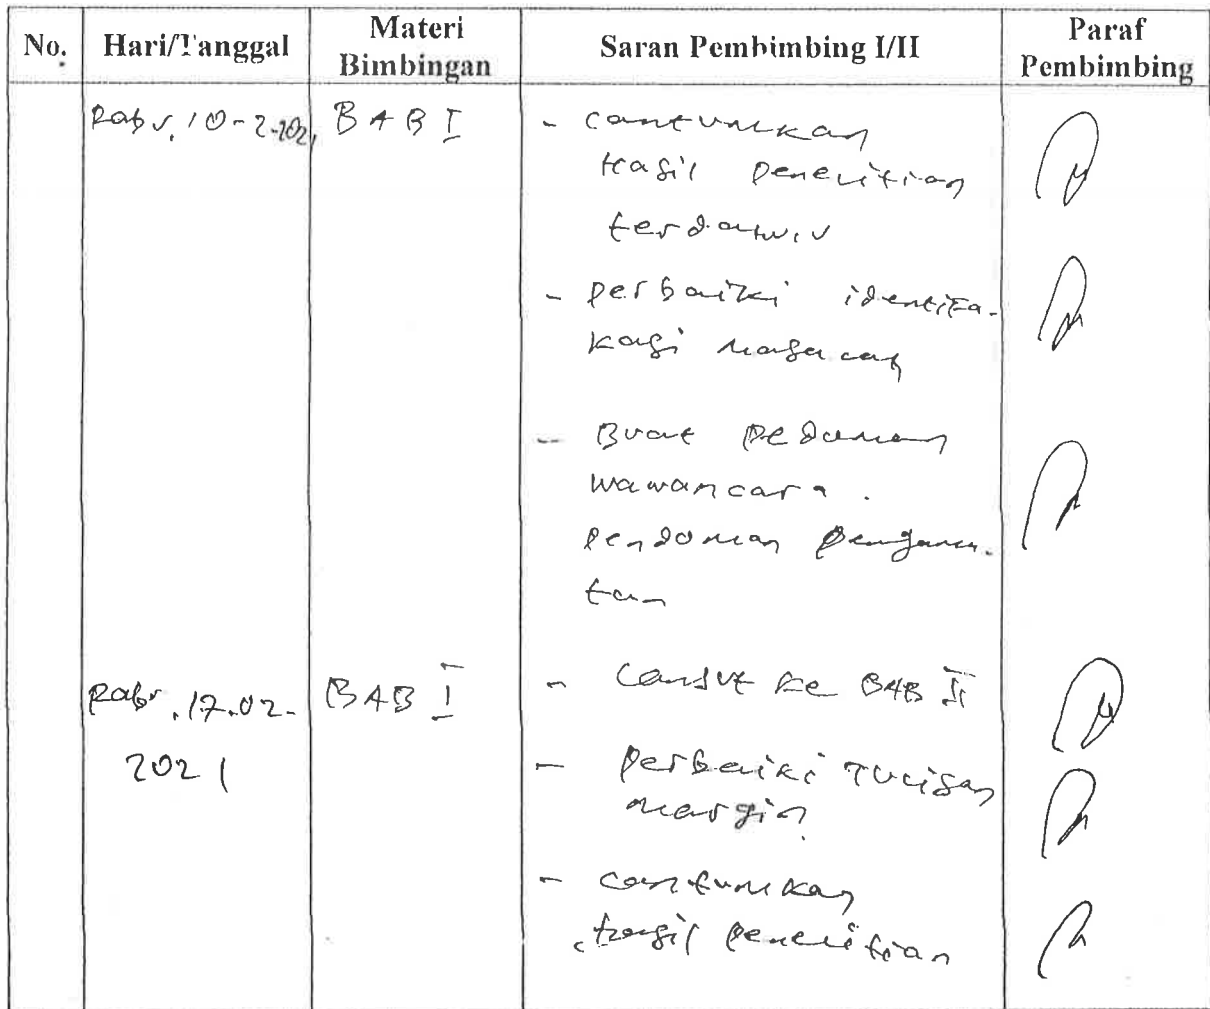 No. Hari/Tanggal Materi Bimbingan Saran Pembimbing I/II Paraf Pembimbing
Rabu, 10-2-2021 BAB I - cantumkan
Hasil penelitian
terdahulu
- perbaiki identifi-
kasi masalah
- Buat pedoman
wawancara.
pendoman pengama-
tan
Rabu, 17.02- BAB I - Lanjut ke BAB II
2021 - perbaiki Tulisan
margin
- cantumkan
hasil penelitian